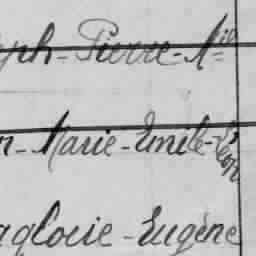 ph-Pierre-Mie
n-Marie-Emile-Léon
agloire-Eugène